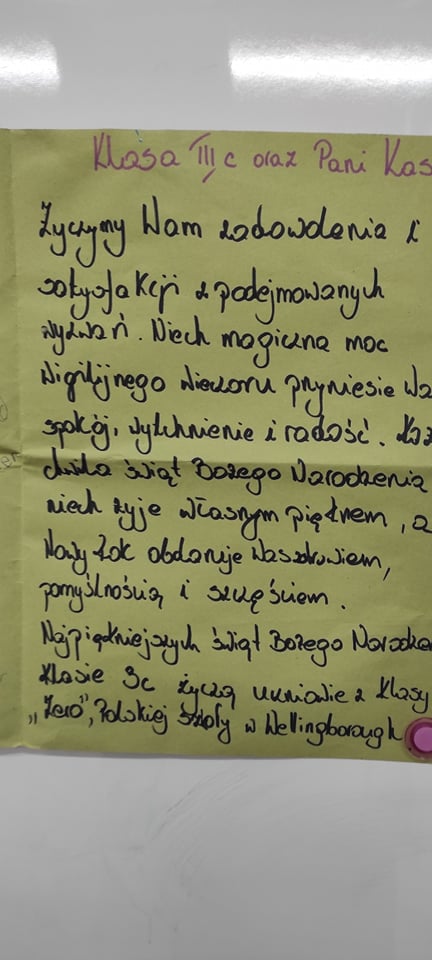 Klasa III c oraz Pani Kas
Życzymy Wam zadowolenia i
satysfakcji z podejmowanych
wyzwań. Niech magiczna moc
Wigilijnego Wieczoru przyniesie Wa
spokój, wytchnienie i radość. Każ
chwila świąt Bożego Narodzenia
niech żyje własnym pięknem, a
Nowy Rok obdaruje Was zdrowiem,
pomyślnością i szczęściem.
Najpiękniejszych świąt Bożego Narodze
Klasie 3c życzą uczniowie z klasy
„Zero”, Polskiej Szkoły w Wellingborough